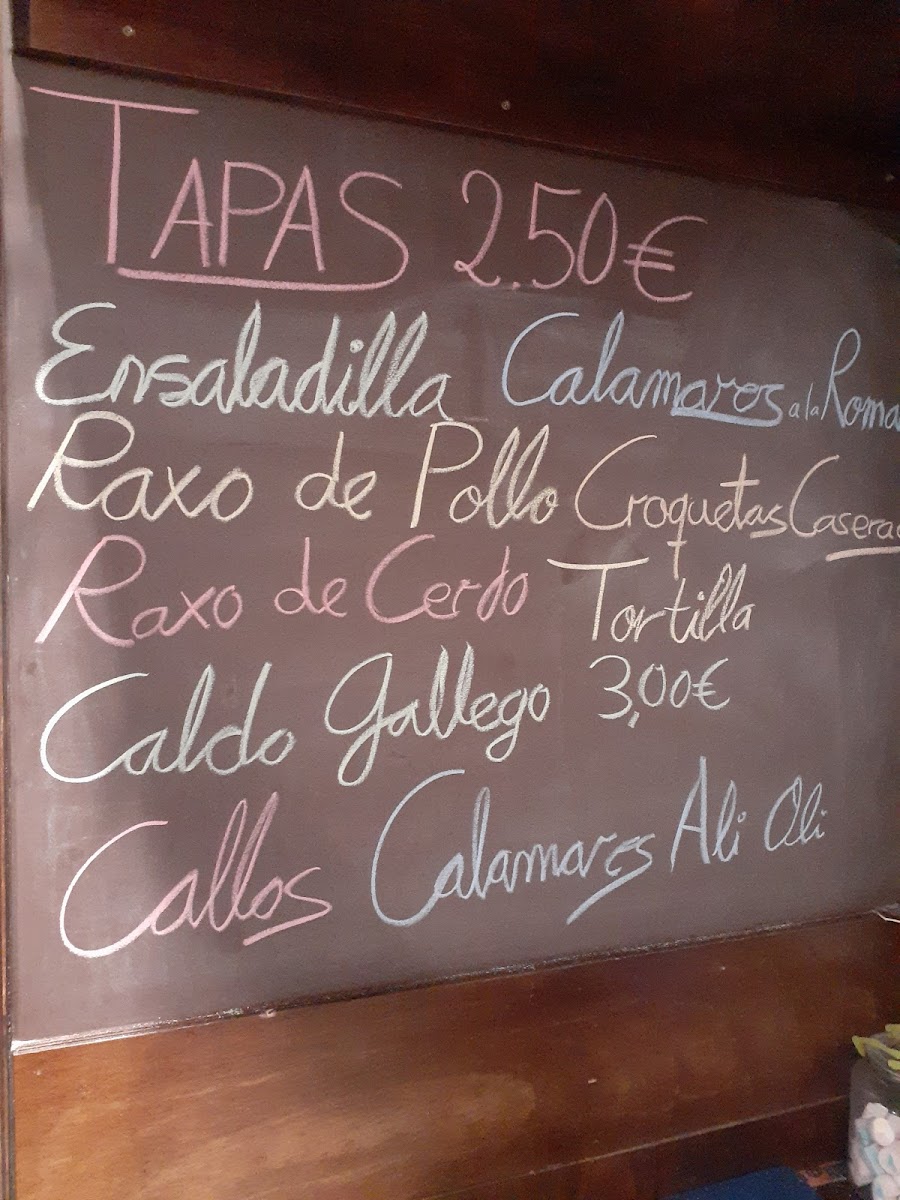 TAPAS 2.50€
Ensaladilla Calamares a la Roma
Raxo de Pollo Croquetas Casera
Raxo de Cerdo Tortilla
Caldo gallego 3,00€
Callos Calamares Ali Oli